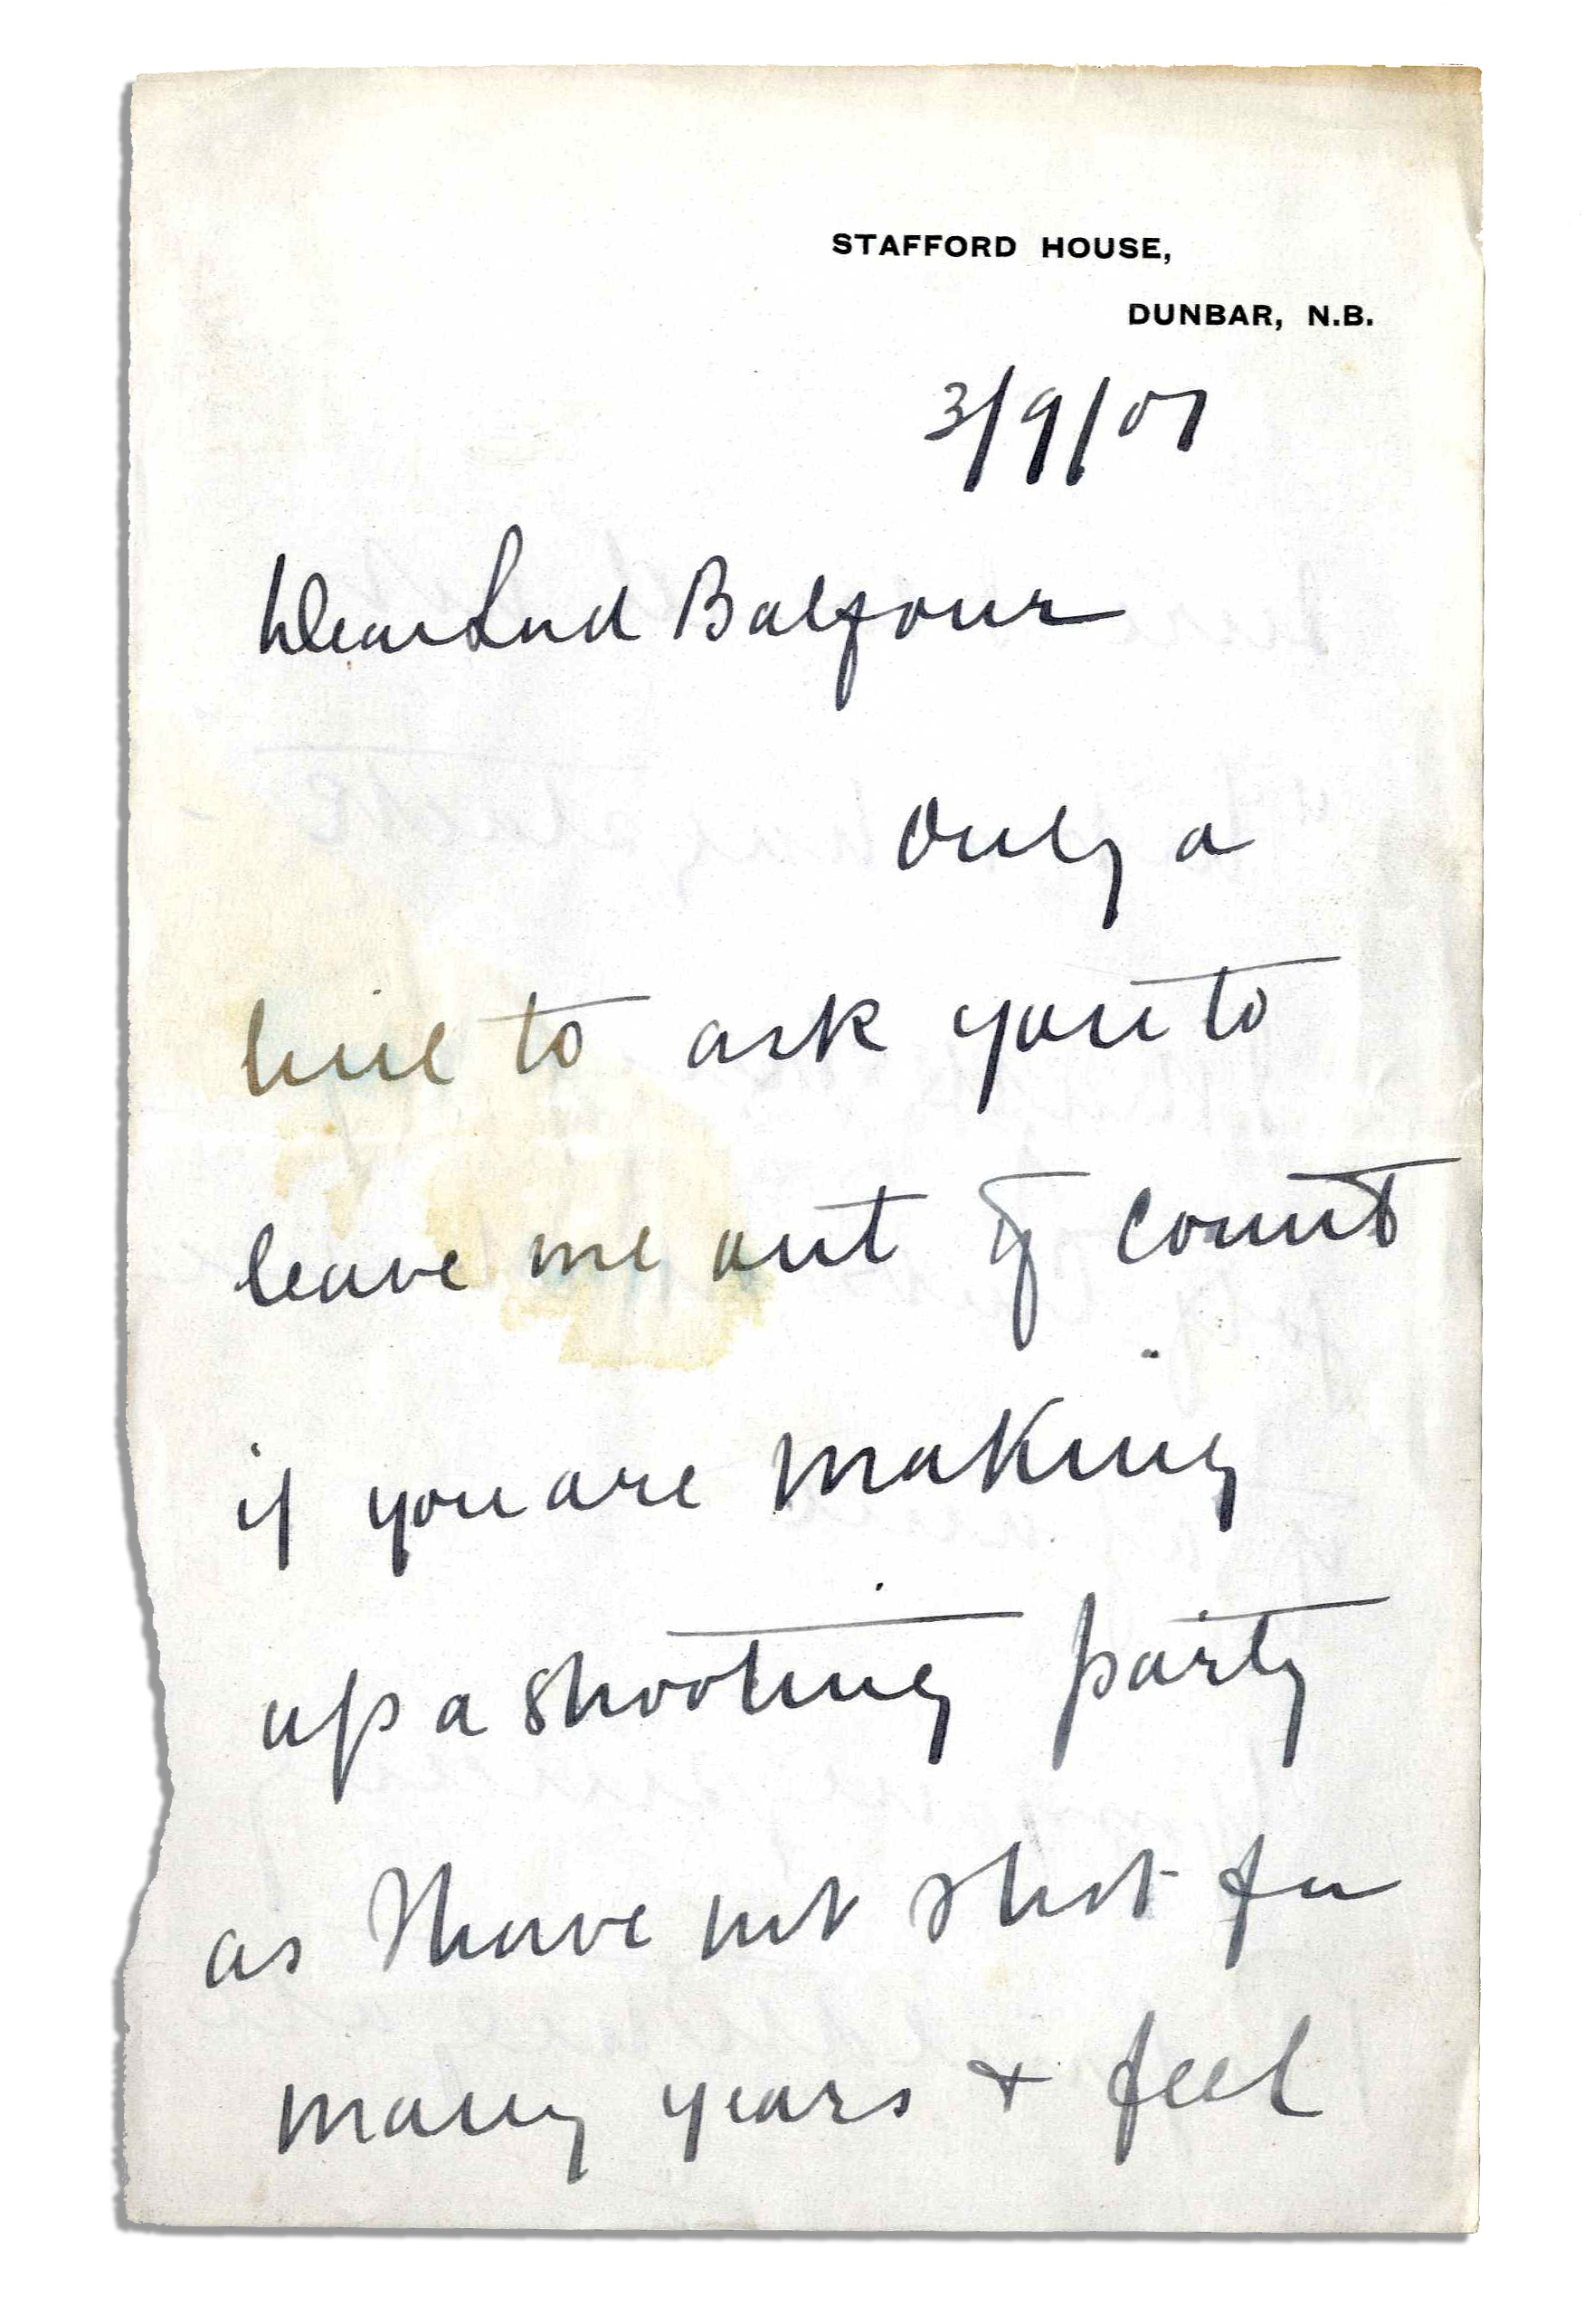 STAFFORD HOUSE,
DUNBAR, N.B.
3/9/07
Dear Lord Balfour
Only a
line to ask you to
leave me out of count
if you are making
up a shooting party
as I have not shot for
many years & feel